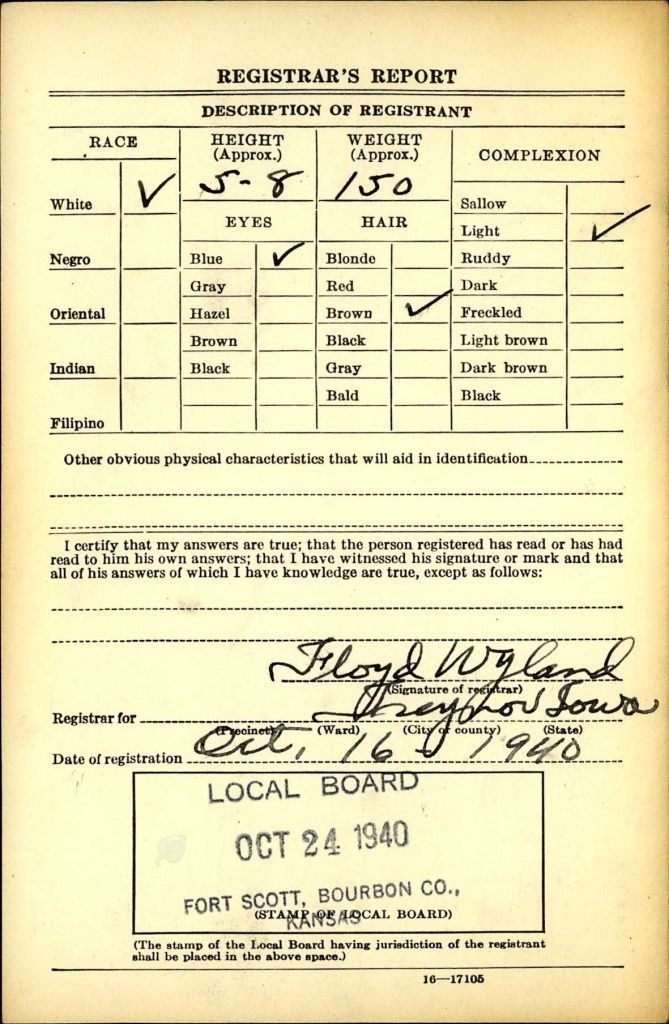 REGISTRAR'S REPORT
DESCRIPTION OF REGISTRANT
RACE
HEIGHT
(Approx.)
WEIGHT
(Approx.)
COMPLEXION
White ✓
5-8
150
Sallow
EYES
HAIR
Light ✓
Negro
Blue ✓
Blonde
Ruddy
Gray
Red
Dark
Oriental
Hazel
Brown ✓
Freckled
Brown
Black
Light brown
Indian
Black
Gray
Dark brown
Bald
Black
Filipino
Other obvious physical characteristics that will aid in identification
I certify that my answers are true; that the person registered has read or has had
read to him his own answers; that I have witnessed his signature or mark and that
all of his answers of which I have knowledge are true, except as follows:
Floyd Wyland
(Signature of registrar)
Registrar for Treynor Iowa
(Precinct) (Ward) (City or county) (State)
Date of registration Oct. 16 - 1940
LOCAL BOARD
OCT 24 1940
FORT SCOTT, BOURBON CO.,
KANSAS
(STAMP OF LOCAL BOARD)
(The stamp of the Local Board having jurisdiction of the registrant
shall be placed in the above space.)
16—17105